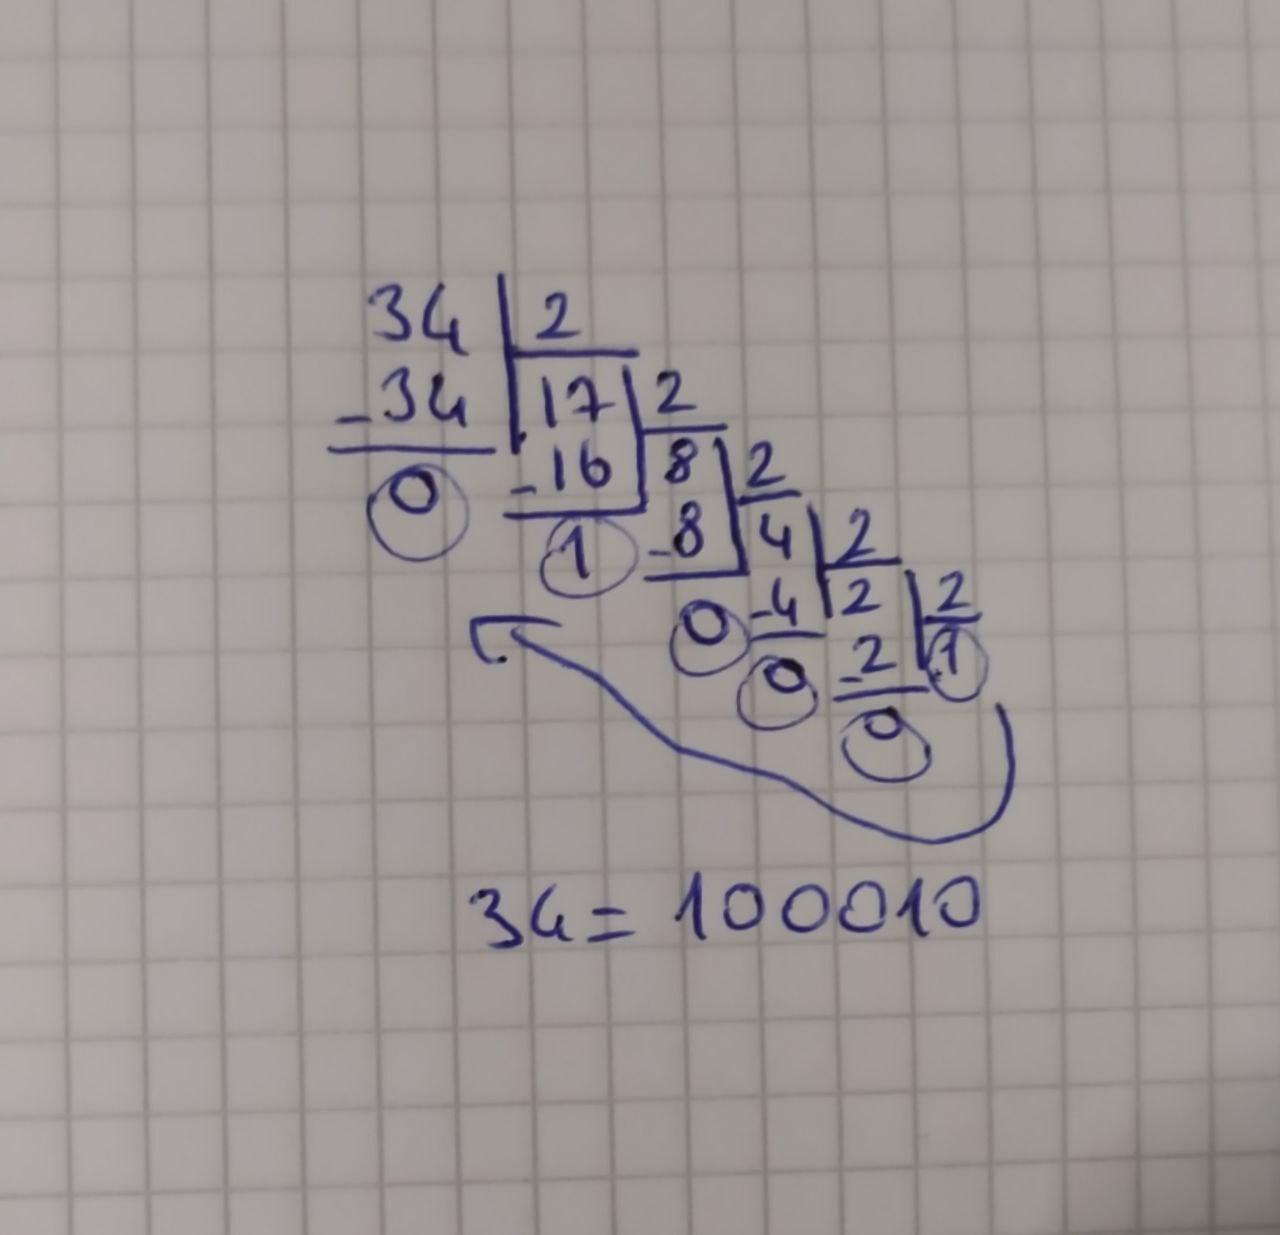 34 2
-34 17 2
0 -16 8 2
1 -8 4 2
0 -4 2 2
0 -2 1
0
34 = 100010